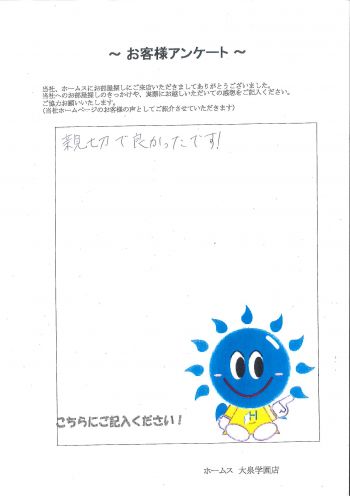 ～ お客様アンケート ～
当社、ホームスにお部屋探しにご来店いただきましてありがとうございました。
当社へのお部屋探しのきっかけや、実際にお越しいただいての感想をご記入ください。
ご協力お願いいたします。
(当社ホームページのお客様の声としてご紹介させていただきます)
親切で良かったです!
H
こちらにご記入ください！
ホームス 大泉学園店